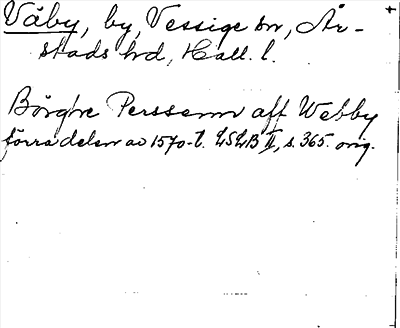 Våby, by, Vessige sn, År-
stads hd, Hall. l.
Börghe Perssenn aff Webby
förra delen av 1570-t. LSLB II, s. 365. orig.